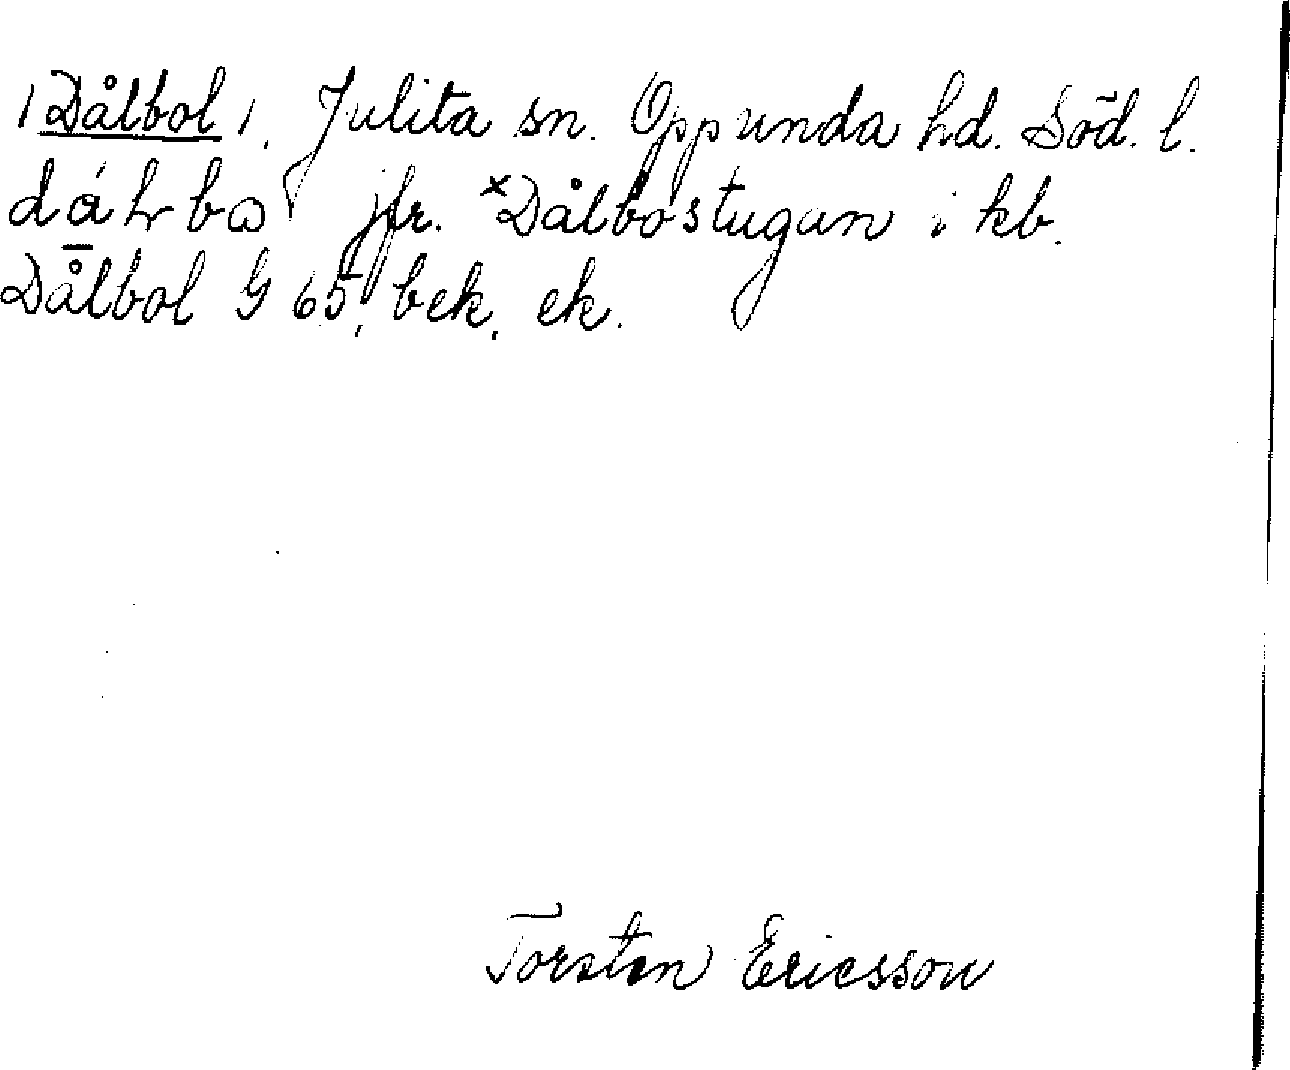 /Dålbol/, Julita sn. Oppunda hd. Söd. l.
jfr. ˣDålbostugan i kb.
Dålbol G 65, bek, ek.
Torsten Ericsson